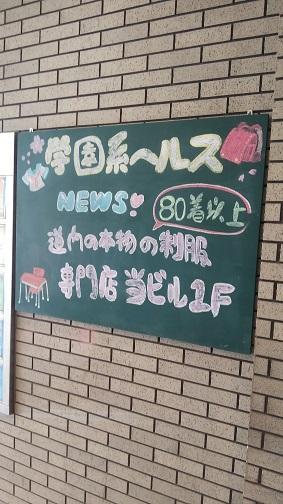 学園系ヘルス
NEWS
80着以上
道内の本物の制服
専門店 当ビル1F